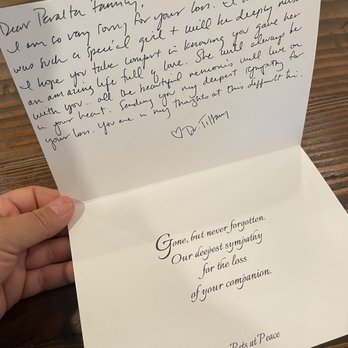 Dear Peralta Family,
I am so very sorry for your loss. I know
was such a special girl & will be deeply
I hope you take comfort in knowing you gave her
an amazing life full of love. She will always be
with you.. all the beautiful memories will live on
in your heart. Sending you my deepest sympathy for
your loss. You are in my thoughts at this difficult time.
♡ Dr. Tiffany
Gone, but never forgotten.
Our deepest sympathy
for the loss
of your companion.
Pets at Peace